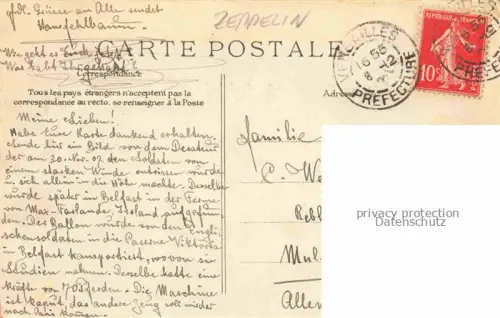 frdl. Grüsse an Alle sendet
ZEPPELIN
Wie geht es Euch
Was habt Ihr
CARTE POSTALE
Correspondance
Tous les pays étrangers n'acceptent pas la
correspondance au recto. se renseigner à la Poste
Adres
VERSAILLES
16 55
PREFECTURE
REPUBLIQUE FRANÇAISE
10
Meine Lieben!
Habe Eure Karte dankend erhalten.
sende hier ein Bild von dem Dirateur
der am 30. Nov. 07 den Soldaten von
einem starken Winde entrissen wurde
u. sich allein in die Höhe machte. Derselbe
wurde später in Belfast in der Ferne
von Max-Farlande, Irland aufgefun-
den. Der Ballon wurde von den Engli-
schensoldaten in die Caserne Viktoria
in Belfast transportiert, wovon sie
Studien nahmen. Derselbe hatte eine
kräfte von 70 Pferden. Die Maschine
ist kaput, das andere Zeug soll wieder
nach Paris kommen.
Familie
C. We
Rebl
Mul
Allem
privacy protection
Datenschutz